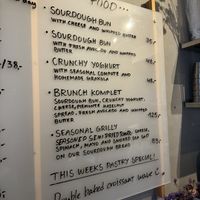 FOOD...
SOURDOUGH BUN
WITH CHEESE AND WHIPPED BUTTER
SOURDOUGH BUN
WITH FRESH AVOCADO AND WHIPPED
BUTTER
CRUNCHY YOGHURT
WITH SEASONAL COMPOTE AND
HOMEMADE GRANOLA
BRUNCH KOMPLET
SOURDOUGH BUN, CRUNCHY YOGHURT,
CHEESE, HOMEMADE HAZELNUT
SPREAD, FRESH AVOCADO AND WHIPPED
BUTTER
125,-
SEASONAL GRILLY
SEASONED SEMI DRIED CHEESE,
SPINACH, MAYO AND
ON OUR SOURDOUGH BREAD
THIS WEEKS PASTRY SPECIAL!
Double baked croissant